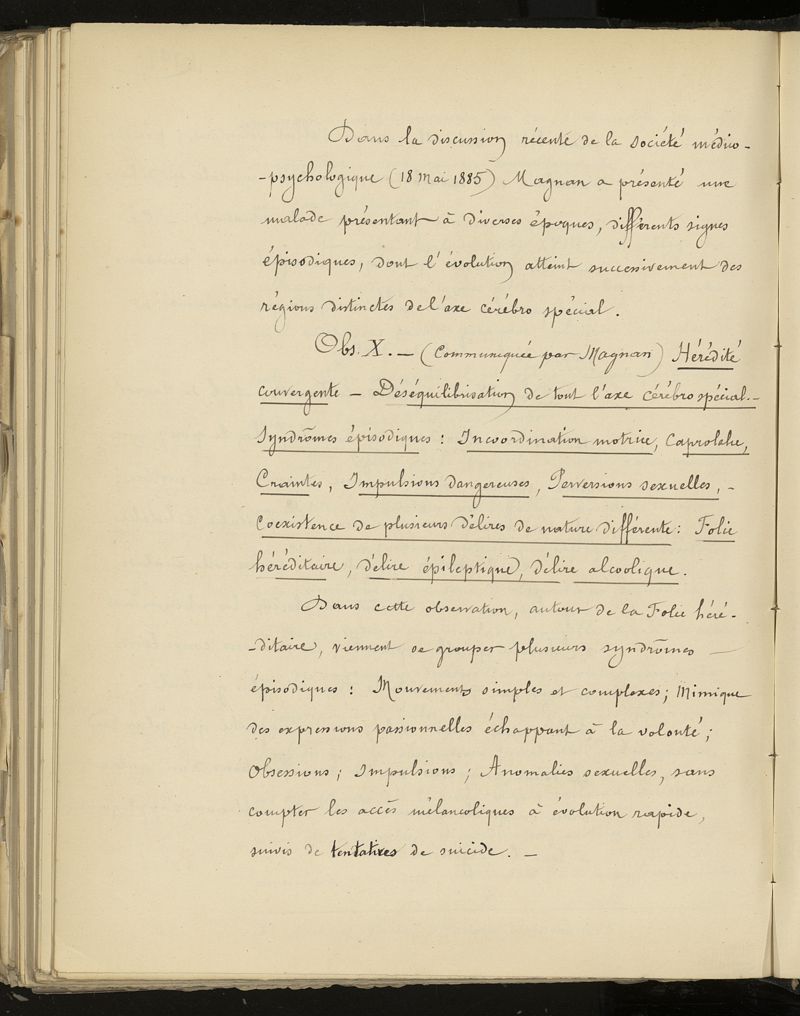 Dans la discussion récente de la société médico-
-psychologique (18 mai 1885) Magnan a présenté une
malade présentant à diverses époques, différents signes
épisodiques, dont l'évolution atteint successivement des
régions distinctes de l'axe cérébro spécial.
Obs. X. — (Communiquée par Magnan) Hérédité
convergente — Déséquilibrisation de tout l'axe cérébro spécial. —
Syndrômes épisodiques : Incoordination motrice, Caprolalie,
Craintes, Impulsions dangereuses, Perversions sexuelles, -
Coexistence de plusieurs délires de nature différente : Folie
héréditaire, délire épileptique, délire alcoolique.
Dans cette observation, autour de la Folie héré-
-ditaire, viennent se grouper plusieurs syndrômes —
épisodiques : Mouvements simples et complexes ; Mimique
des expressions passionnelles échappant à la volonté ;
Obsessions ; Impulsions ; Anomalies sexuelles, sans
compter les accès mélancoliques à évolution rapide,
suivis de tentatives de suicide. —